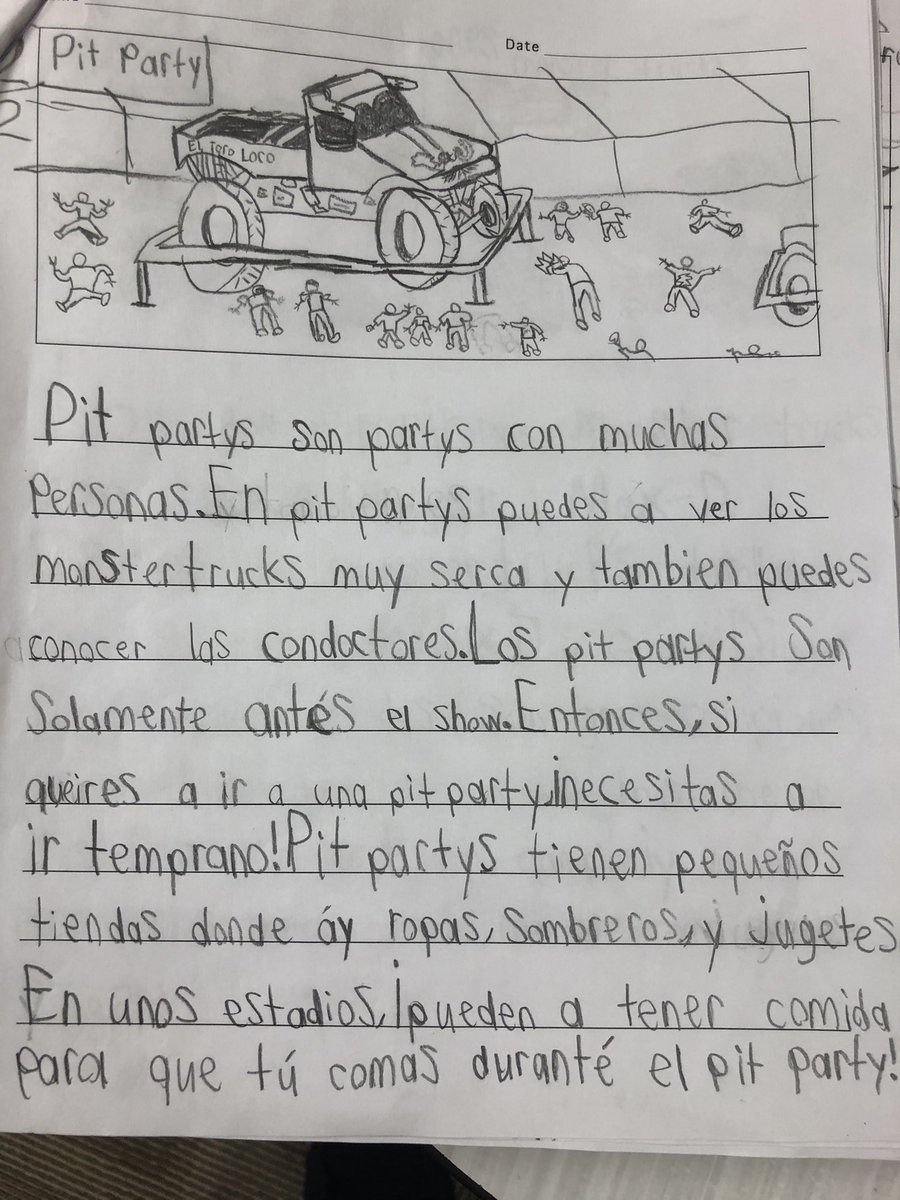 Date
Pit Party
El Toro Loco
Pit partys son partys con muchas
Personas. En pit partys puedes a ver los
monstertrucks muy serca y tambien puedes
aconocer las condoctores. Los pit partys Son
Solamente antés el show. Entonces, si
queires a ir a una pit party, ¡necesitas a
ir temprano! Pit partys tienen pequeños
tiendas donde áy ropas, Sombreros, y jugetes
En unos estadios, ¡pueden a tener comida
para que tú comas duranté el pit party!